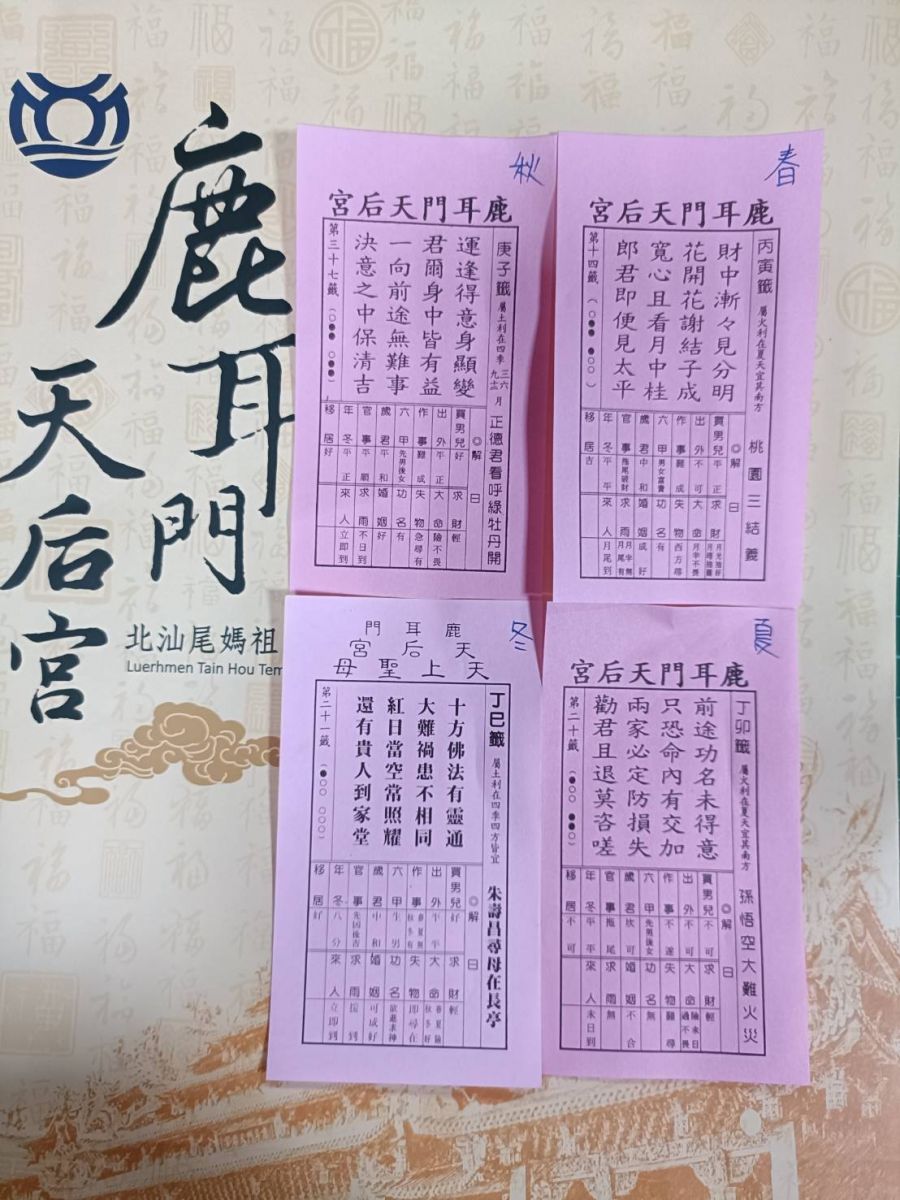 鹿耳門
天后宮
北汕尾媽祖
Luerhmen Tain Hou Tem
春
鹿耳門天后宮
丙寅籤 屬火利在夏天宜其南方 桃園三結義
財中漸々見分明
花開花謝結子成
寬心且看月中桂
郎君即便見太平
第十四籤
◎解曰
買男兒 平正 求財
出外 不可 大命 月半不畏
作事 難成 失物 西方尋
六甲 男女富貴 功名 有
歲君 中和 婚姻 成好
官事 拖尾破財 求雨 月半無月尾有
年冬 平平 來人 月尾到
移居 吉
秋
鹿耳門天后宮
庚子籤 屬土利在四季 三六九十二月 正德君看呼綠牡丹開
運逢得意身顯變
君爾身中皆有益
一向前途無難事
決意之中保清吉
第三十七籤
◎解曰
買男兒 好 求財 輕
出外 平正 大命 險不畏
作事 難成 失物 急尋有
六甲 先男後女 功名 有
歲君 平和 婚姻 好
官事 平順 求雨 不日到
年冬 平正 來人 立即到
移居 好
夏
鹿耳門天后宮
丁卯籤 屬火利在夏天宜其南方 孫悟空大難火災
前途功名未得意
只恐命內有交加
兩家必定防損失
勸君且退莫咨嗟
第二十籤
◎解曰
買男兒 不可 求財 輕
出外 不可 大命 險未日過不畏
作事 不遂 失物 難尋
六甲 先男後女 功名 無
歲君 坎可 婚姻 不合
官事 拖尾 求雨 無
年冬 平平 來人 未日到
移居 不可
冬
鹿耳門
天后宮
天上聖母
丁巳籤 屬土利在四季四方皆宜 朱壽昌尋母在長亭
十方佛法有靈通
大難禍患不相同
紅日當空常照耀
還有貴人到家堂
第二十一籤
◎解曰
買男兒 好 求財 輕
出外 平平 大命 春夏險秋冬好
作事 春夏無秋冬有 失物 即尋在
六甲 生男 功名 欲進求神
歲君 中和 婚姻 可成好
官事 先凶後吉 求雨 到
年冬 八分 來人 立即到
移居 好